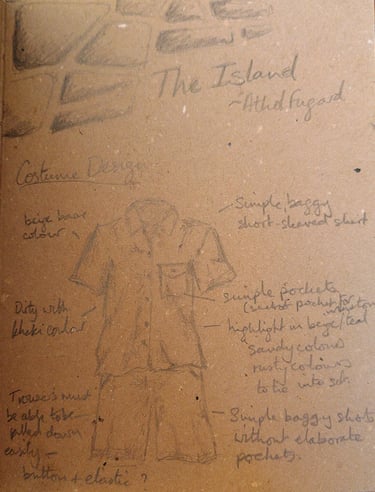 The Island
~ Athol Fugard
Costume Design
beige base
colour
Simple, baggy
short-sleeved shirt
simple pockets
pocket for
highlight in beige/teal
sandy colours
rusty colours
to tie into set.
Dirty with
khaki colour
Trousers must
be able to be
pulled down
easily -
button + elastic ?
Simple baggy shorts
without elaborate
pockets.